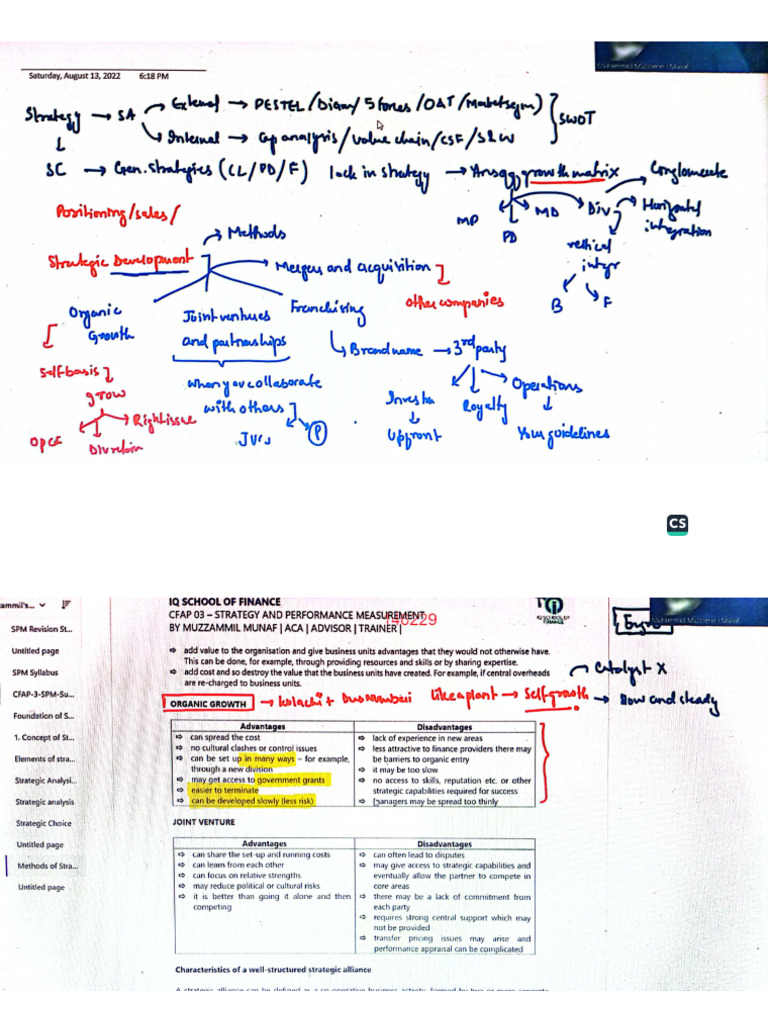 Saturday, August 13, 2022 6:18 PM
Strategy → SA → External → PESTEL / Diam / 5 forces / OAT / Market segm) SWOT
→ Internal → Cap analysis / value chain / CSF / S&W
SC → Gen. strategies (CL/PD/F) lack in strategy → Ansoff growth matrix
Conglomerate
MP
PD
MD
Div
Horizontal integration
vertical integr
B
F
Positioning/sales/
Strategic Development
→ Methods
Mergers and acquisition
other companies
Organic Growth
Joint ventures and partnerships
Franchising
Self basis
grow
OPCF
Right issue
when you collaborate
with others
JVs
P
Brand name → 3rd party
Royalty
Operations
Upfront
Your guidelines
CS
IQ SCHOOL OF FINANCE
CFAP 03 – STRATEGY AND PERFORMANCE MEASUREMENT
BY MUZZAMMIL MUNAF | ACA | ADVISOR | TRAINER |
IQ SCHOOL OF FINANCE
SPM Revision St...
Untitled page
SPM Syllabus
CFAP-3-SPM-Su...
Foundation of S...
1. Concept of St...
Elements of stra...
Strategic Analysi...
Strategic analysis
Strategic Choice
Untitled page
Methods of Stra...
Untitled page
⇨ add value to the organisation and give business units advantages that they would not otherwise have.
This can be done, for example, through providing resources and skills or by sharing expertise.
⇨ add cost and so destroy the value that the business units have created. For example, if central overheads
are re-charged to business units.
Catalyst X
ORGANIC GROWTH → Kolachi + Dua Mumbaii Like a plant → Self growth → slow and steady
Advantages
⇨ can spread the cost
⇨ no cultural clashes or control issues
⇨ can be set up in many ways – for example,
through a new division
⇨ may get access to government grants
⇨ easier to terminate
⇨ can be developed slowly (less risk)
Disadvantages
⇨ lack of experience in new areas
⇨ less attractive to finance providers there may
be barriers to organic entry
⇨ it may be too slow
⇨ no access to skills, reputation etc. or other
strategic capabilities required for success
⇨ managers may be spread too thinly
JOINT VENTURE
Advantages
⇨ can share the set-up and running costs
⇨ can learn from each other
⇨ can focus on relative strengths
⇨ may reduce political or cultural risks
⇨ it is better than going it alone and then
competing
Disadvantages
⇨ can often lead to disputes
⇨ may give access to strategic capabilities and
eventually allow the partner to compete in
core areas
⇨ there may be a lack of commitment from
each party
⇨ requires strong central support which may
not be provided
⇨ transfer pricing issues may arise and
performance appraisal can be complicated
Characteristics of a well-structured strategic alliance